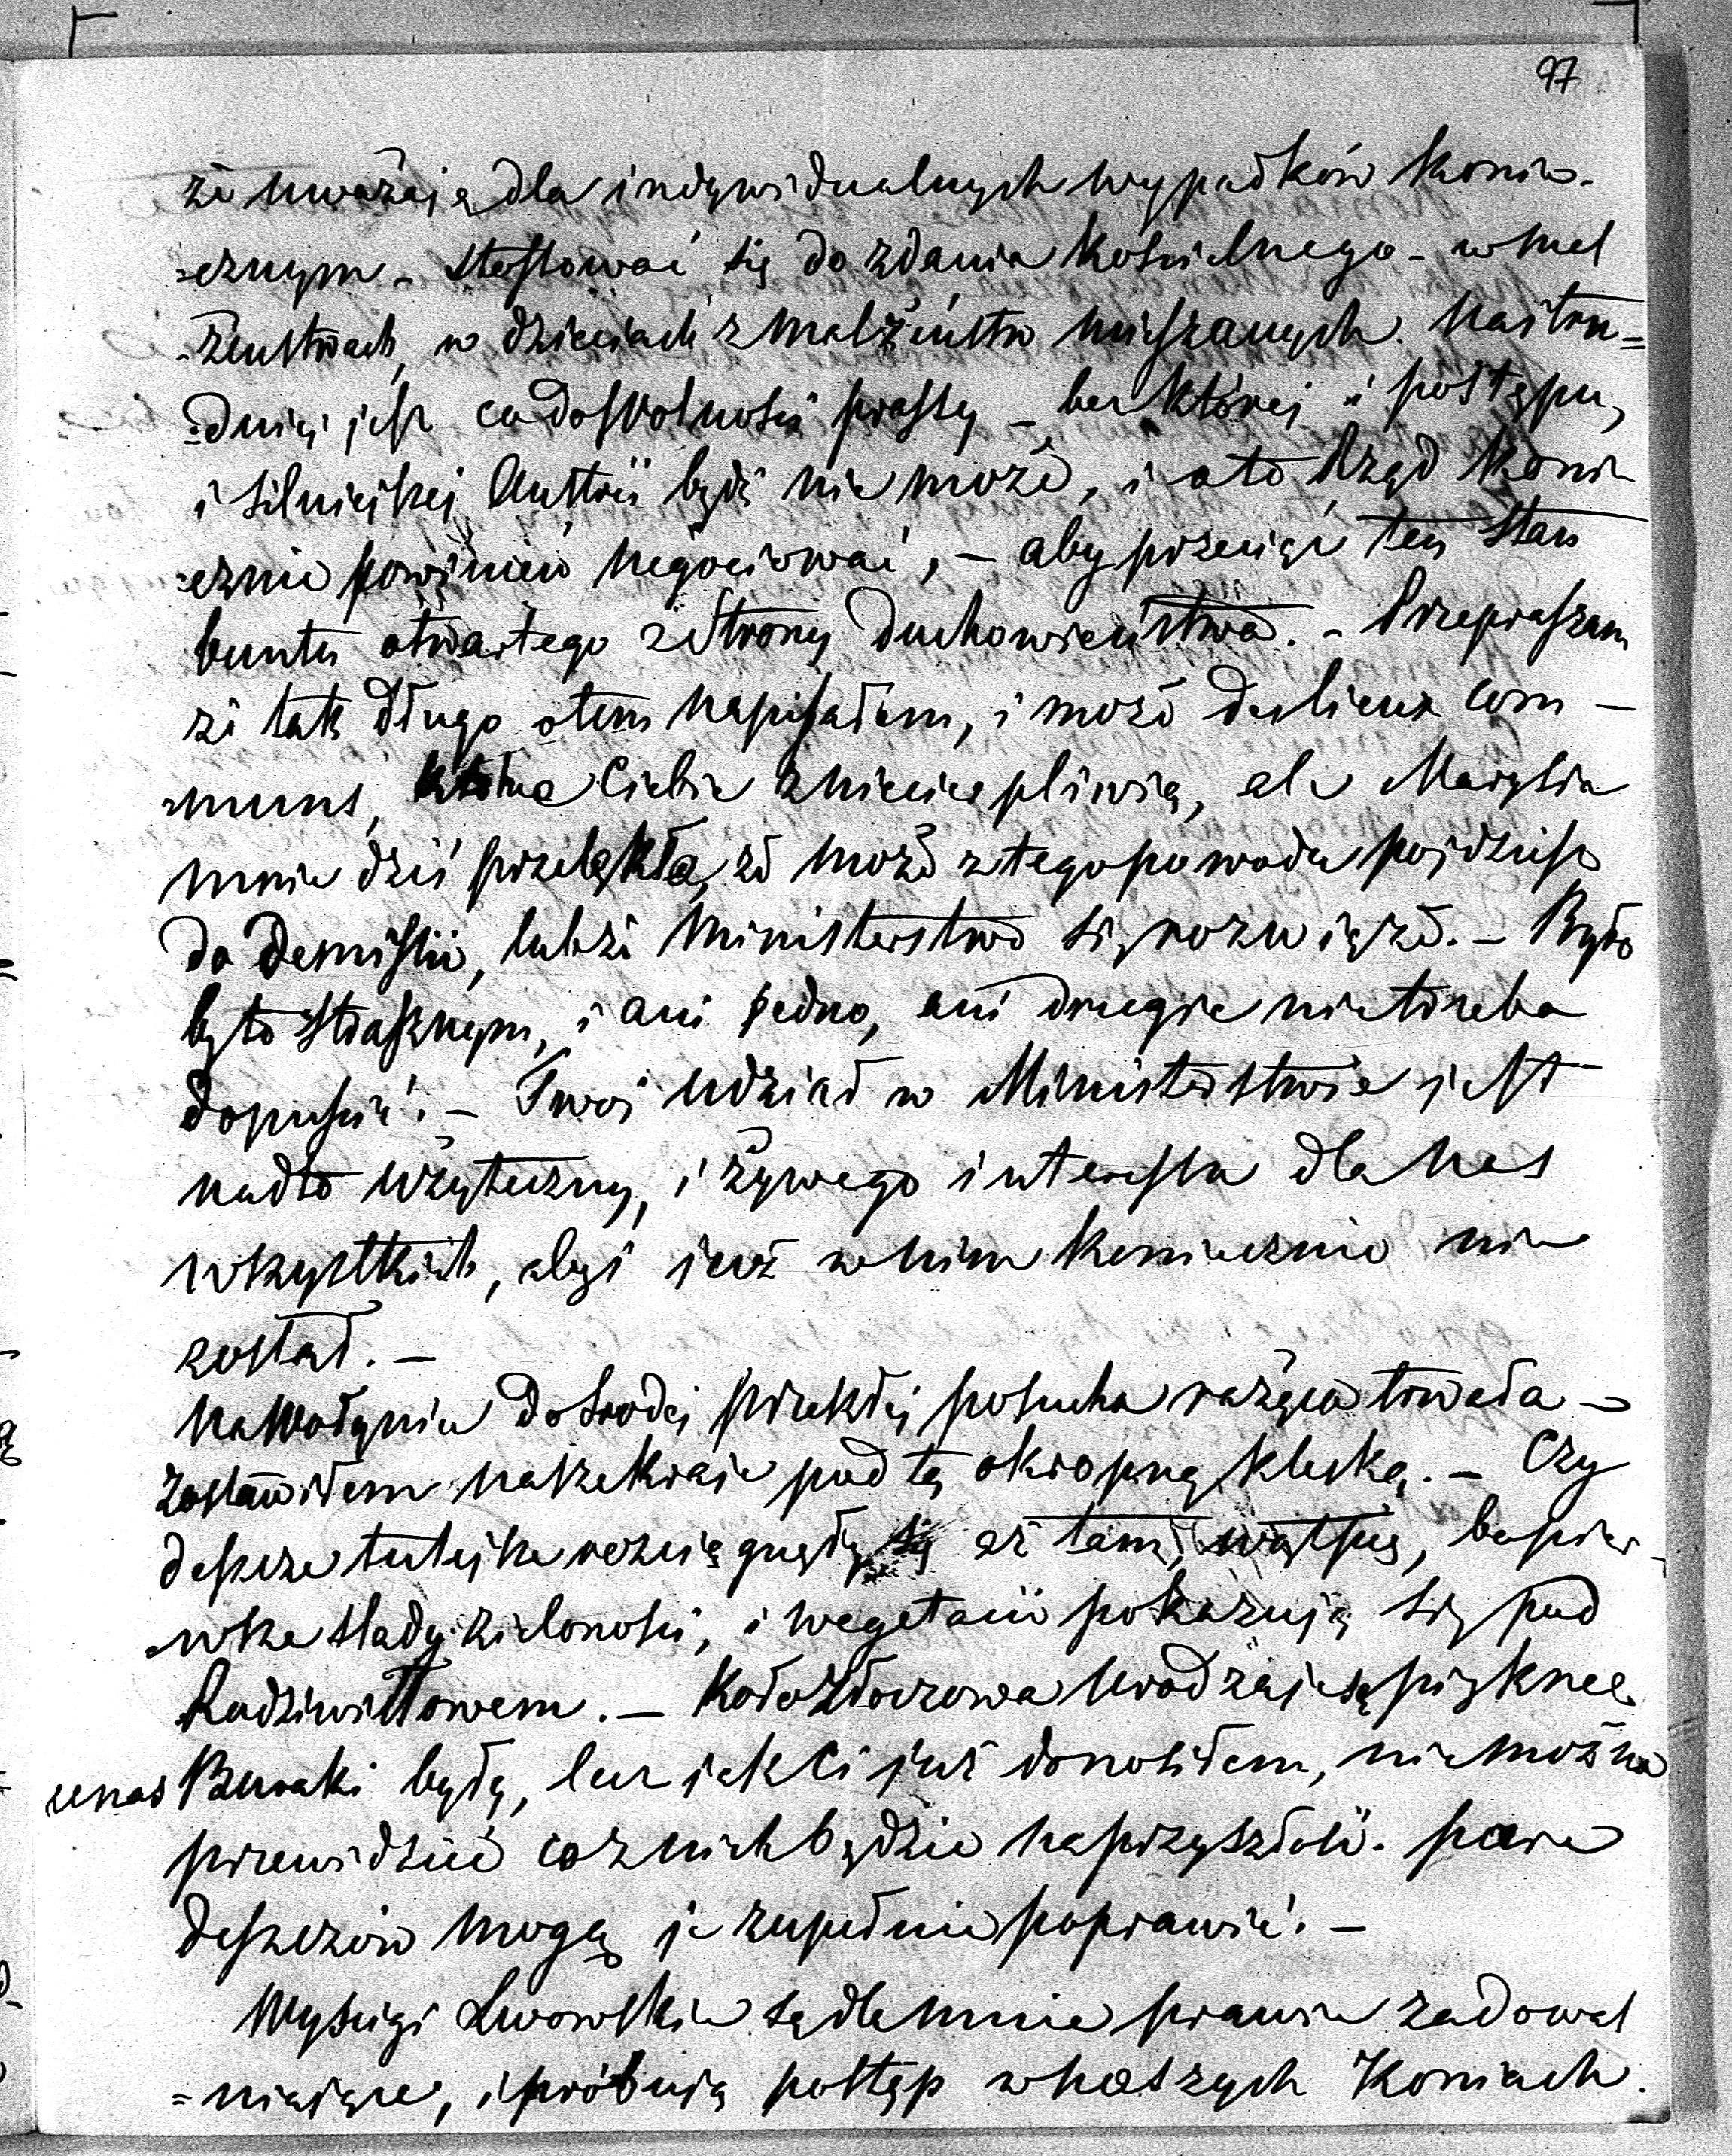 97
że uważają dla indywidualnych wypadków konie-
=cznym – stosować się do zdania kościelnego – w mał
-żeństwach, w dzieciach z małżeństw mieszanych. Najtru=
=dniej jest co do swolności prassy – bez której i postępu,
i silniejszej Austrii być nie może, i oto Rząd konie
=cznie powinien negociować, – aby przeciąć ten stan
buntu otwartego z strony duchowieństwa. – Przepraszam
że tak długo otem napisałem, i może des lieux com –
=muns, które Ciebie zniecierpliwią, ale Marysia
mnie dziś przelękła, że może z tego powodu pójdziesz
do Demissii, lub że Ministerstwo się rozwiąże. – Było
by to strasznym, i ani jedno, ani drugie nie trzeba
dopuścić. – Twój udział w Ministerstwie jest
nadto użyteczny, i żywego interessu dla nas
wszystkich, abyś jeż w nim koniecznie nie
został. –
Na Wołyniu do środy przeszłej posucha rażąca trwała –
Zostawiłem nasze kraje pod tą okropną klęską. – Czy
deszcze tutejsze rozciągnęły się aż tam, wątpię, bo pier-
=wsze ślady zieloności, i wegetacii pokazują się pod
Radziwiłłowem. – Koło Złoczowa urodzaje są piękne.
u nas Buraki będą, lecz jak Ci już donosiłem, nie można
przewidzieć co z nich będzie na przyszłość. parę
deszczów mogą je zupełnie poprawić. –
Wyścigi Lwowskie są dla mnie prawie zadowal
=niające, i próbują postęp w naszych Koniach.